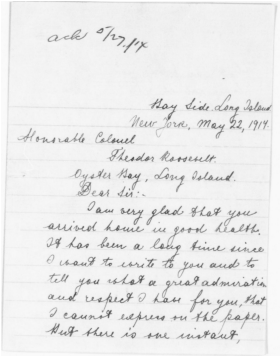 ack 5/27/14
Bay Side. Long Island
New York, May 22, 1914.
Honorable Colonel
Theodor Roosevelt.
Oyster Bay, Long Island.
Dear Sir:-
I am very glad that you
arrived home in good health.
It has been a long time since
I want to write to you and to
tell you what a great admiration
and respect I have for you, that
I cannot express on the paper.
But there is one instant,